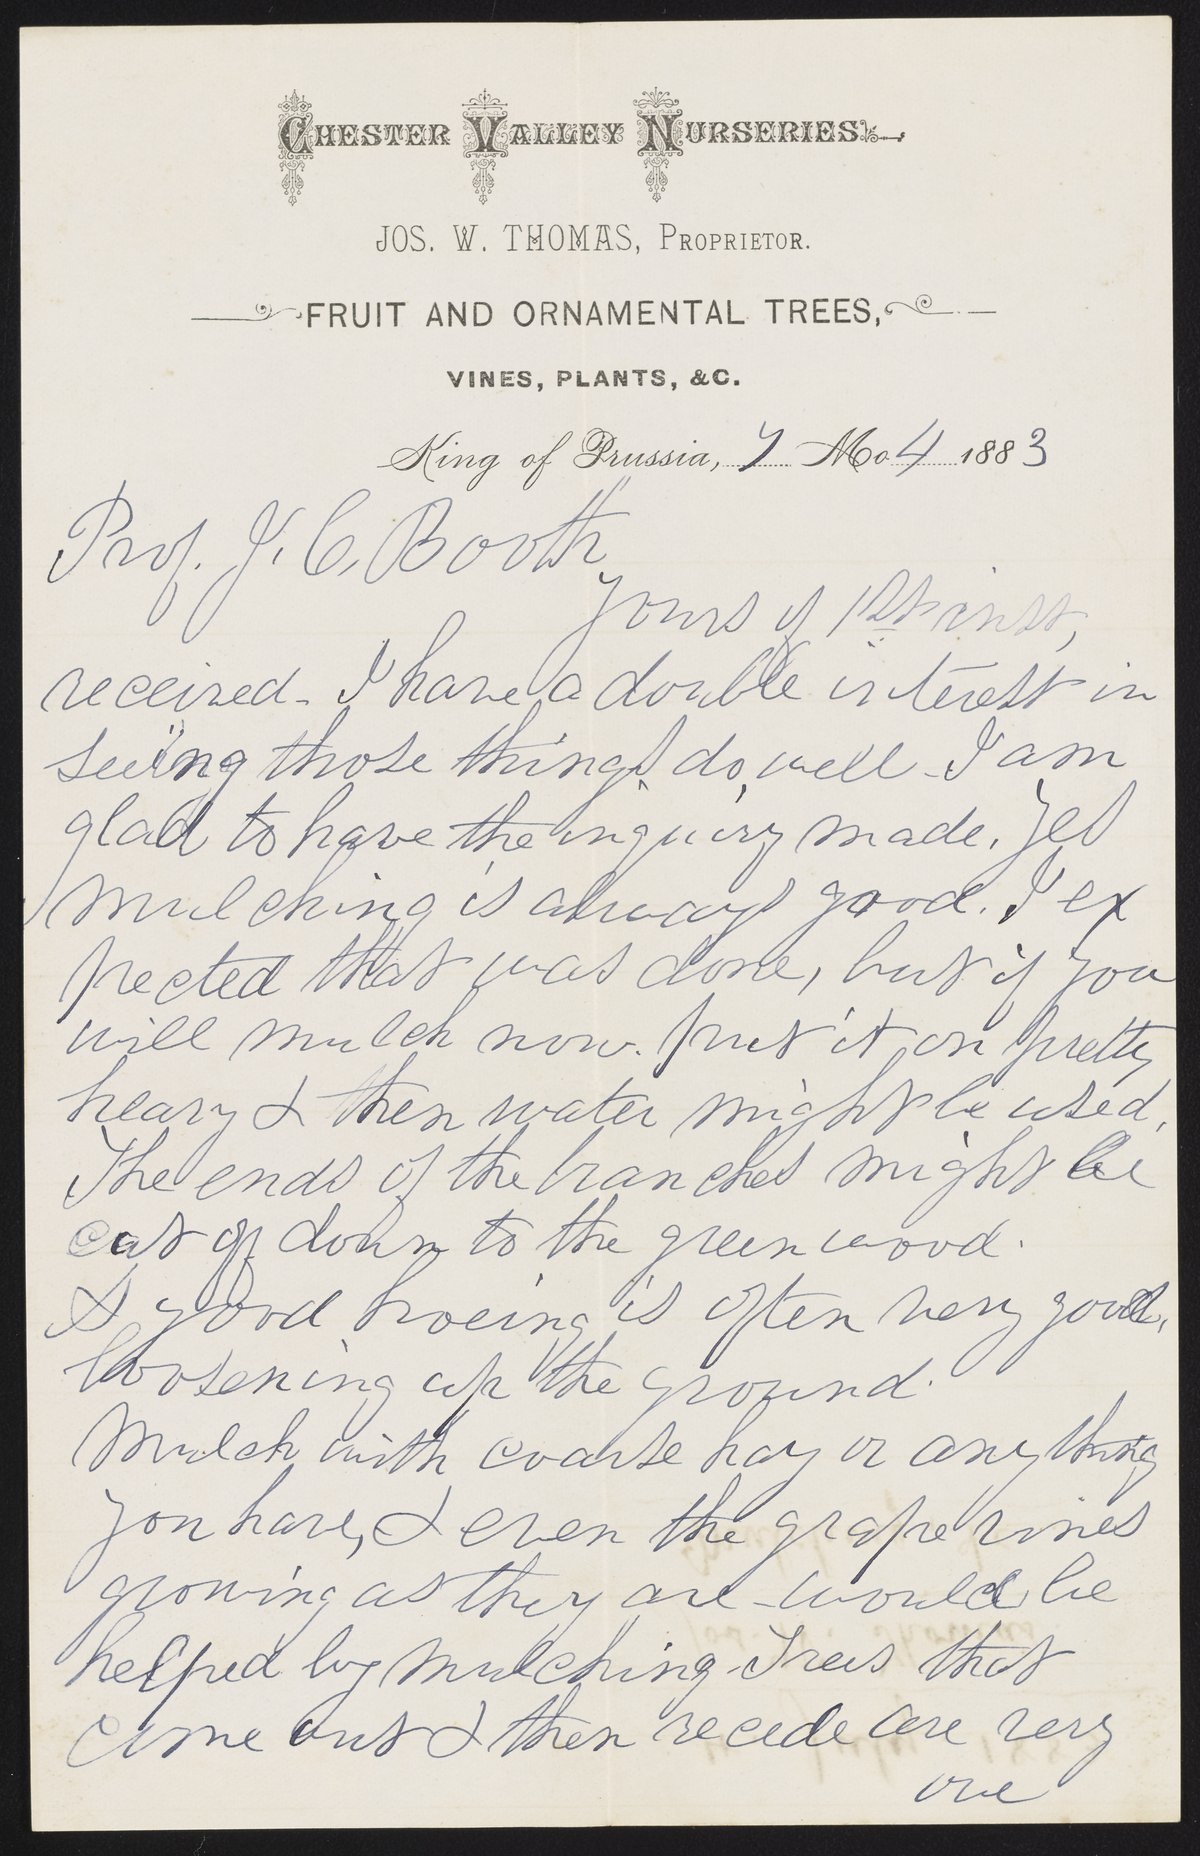 CHESTER VALLEY NURSERIES.
JOS. W. THOMAS, PROPRIETOR.
FRUIT AND ORNAMENTAL TREES,
VINES, PLANTS, &C.
King of Prussia, 7 Mo 4 1883
Prof. J. C. Booth
Yours of 1st inst,
received - I have a double interest in
seeing those things do well - I am
glad to have the inquiry made. Yes
mulching is always good. I ex
pected that was done, but if you
will mulch now. put it on pretty
heavy & then water might be used,
The ends of the branches might be
cut of down to the green wood.
& good hoeing is often very good,
loosening up the ground.
Mulch with coarse hay or any thing
you have, & even the grape vines
growing as they are - would be
helped by mulching - Trees that
come out & then recede are very